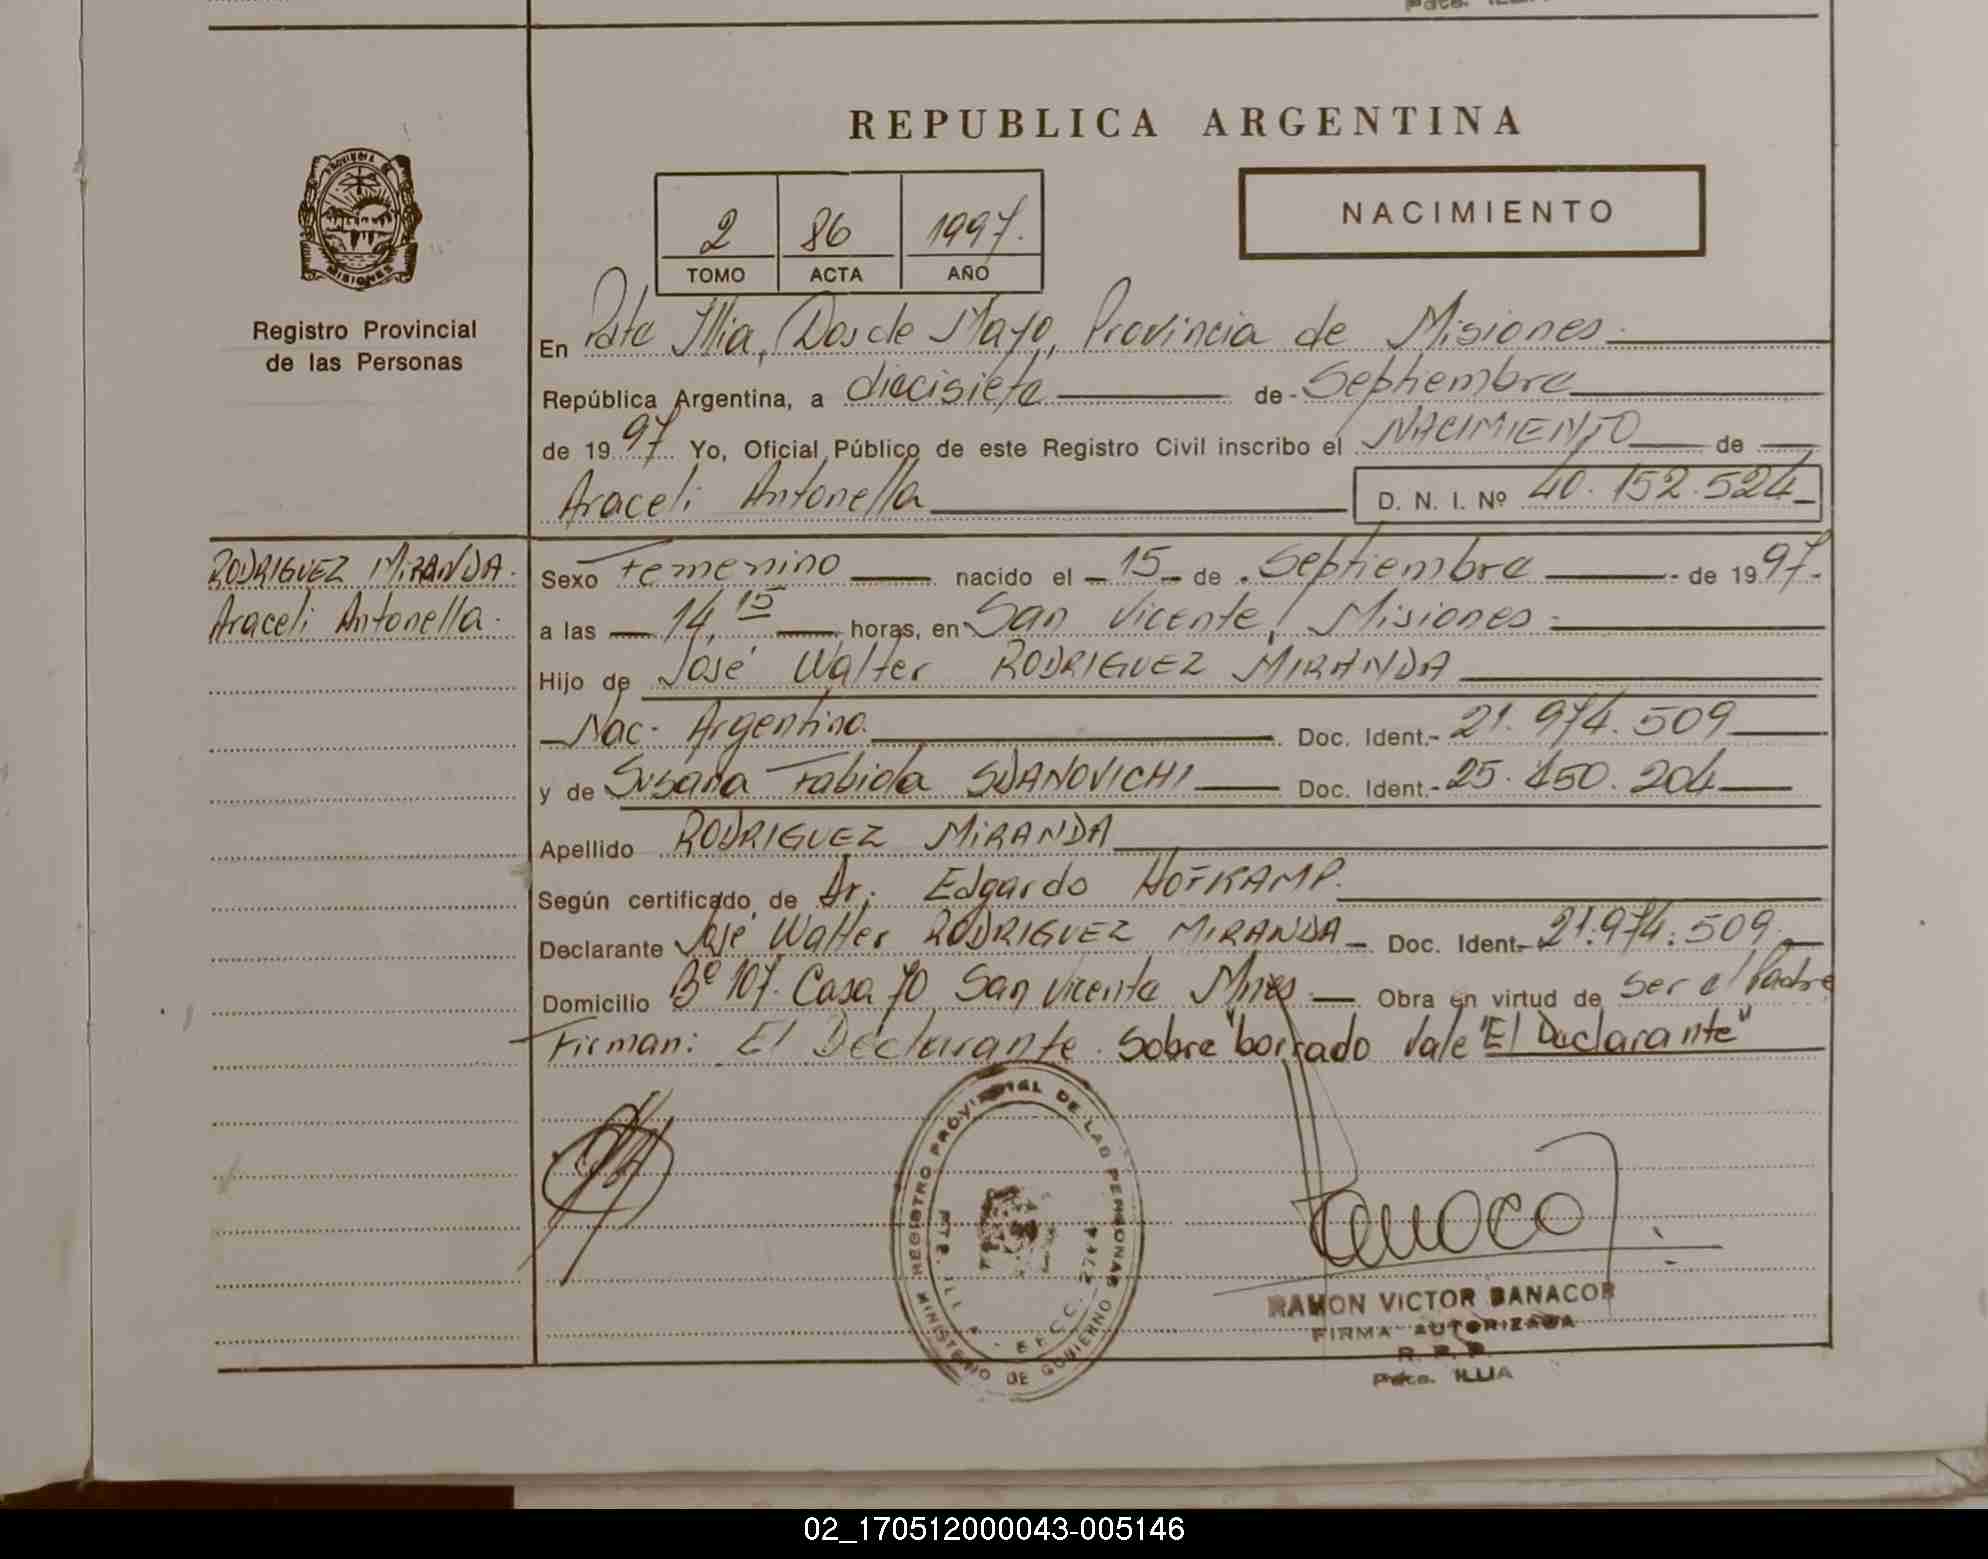 REPUBLICA ARGENTINA
PROVINCIA DE
MISIONES
Registro Provincial
de las Personas
2 86 1997.
TOMO ACTA AÑO
NACIMIENTO
En Pdte Illia, Dos de Mayo, Provincia de Misiones.
República Argentina, a diecisiete de - Septiembre
de 19 97 Yo, Oficial Público de este Registro Civil inscribo el NACIMIENTO de
Araceli Antonella D. N. I. Nº 40.152.524
RODRIGUEZ MIRANDA.
Araceli Antonella.
Sexo Femenino nacido el 15 de Septiembre de 19 97.
a las 14,15 horas, en San Vicente, Misiones
Hijo de José Walter RODRIGUEZ MIRANDA
Nac. Argentina. Doc. Ident.- 21.974.509
y de Susana Fabiola SDANOVICHI Doc. Ident.- 25.450.204
Apellido RODRIGUEZ MIRANDA
Según certificado de Dr. Edgardo HOFKAMP.
Declarante José Walter RODRIGUEZ MIRANDA Doc. Ident- 21.974.509
Domicilio Bº 107. Casa 70 San Vicente Mnes Obra en virtud de Ser el Padre
Firman: El Declarante. Sobre "borrado vale "El Declarante"
REGISTRO PROVINCIAL DE LAS PERSONAS
MINISTERIO DE GOBIERNO
RAMON VICTOR BANACOR
FIRMA AUTORIZADA
R. P. P.
Pdte. ILLIA
02_170512000043-005146